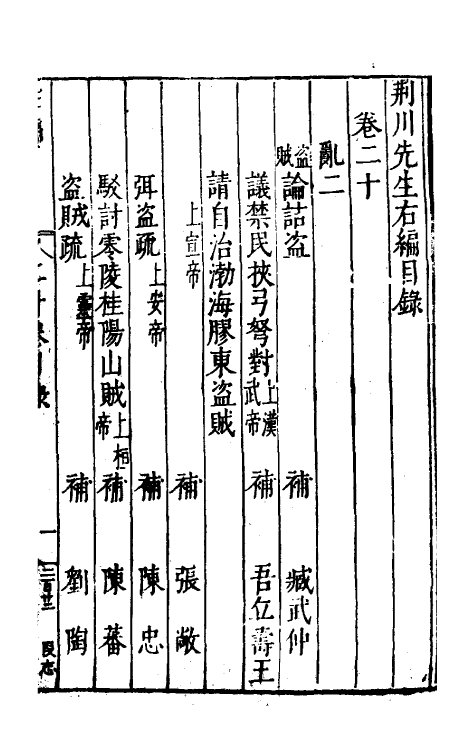 荆川先生右編目錄
卷二十
亂二
盜賊 論詰盜 補 臧武仲
議禁民挾弓弩對 上漢武帝 補 吾丘壽王
請自治渤海膠東盜賊
上宣帝 補 張敞
弭盜疏 上安帝 補 陳忠
駁討零陵桂陽山賊 上桓帝 補 陳蕃
盜賊疏 上靈帝 補 劉陶